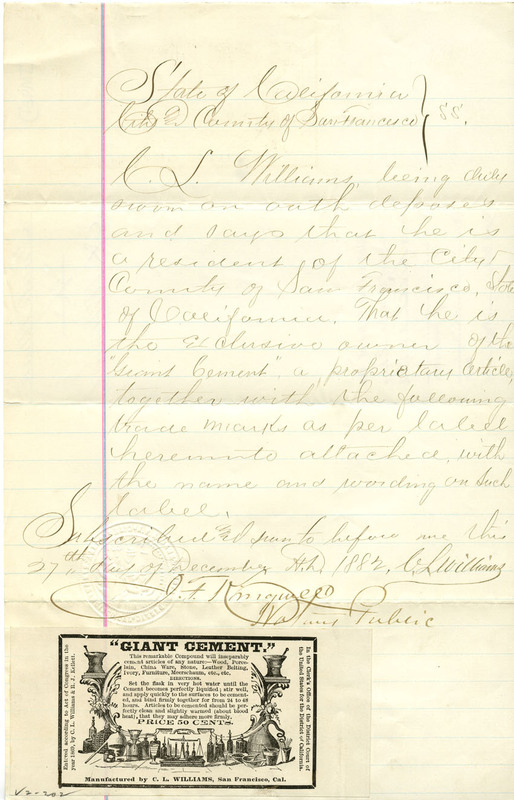 State of California
City & County of San Francisco } ss.
C. L. Williams, being duly
sworn on oath deposes
and says that he is
a resident of the City &
County of San Francisco, State
of California. That he is
the exclusive owner of the
"Giant Cement", a proprietary article,
together with the following
trade marks as per label
hereunto attached, with
the name and wording on such
label.
Subscribed & sworn to before me this
27th day of December 1882, C. L. Williams
Notary Public
"GIANT CEMENT."
This remarkable Compound will inseparably
cement articles of any nature:—Wood, Porce-
lain, China Ware, Stone, Leather Belting,
Ivory, Furniture, Meerschaum, etc., etc.
DIRECTIONS.
Set the flask in very hot water until the
Cement becomes perfectly liquified; stir well,
and apply quickly to the surfaces to be cement-
ed, and bind firmly together for from 24 to 48
hours. Articles to be cemented should be per-
fectly clean and slightly warmed (about blood
heat), that they may adhere more firmly.
PRICE 50 CENTS.
Manufactured by C. L. WILLIAMS, San Francisco, Cal.
Entered according to Act of Congress in the
year 1869, by C. L. Williams & H. J. Kellett.
In the Clerk's Office of the District Court of
the United States for the District of California.
V2-202